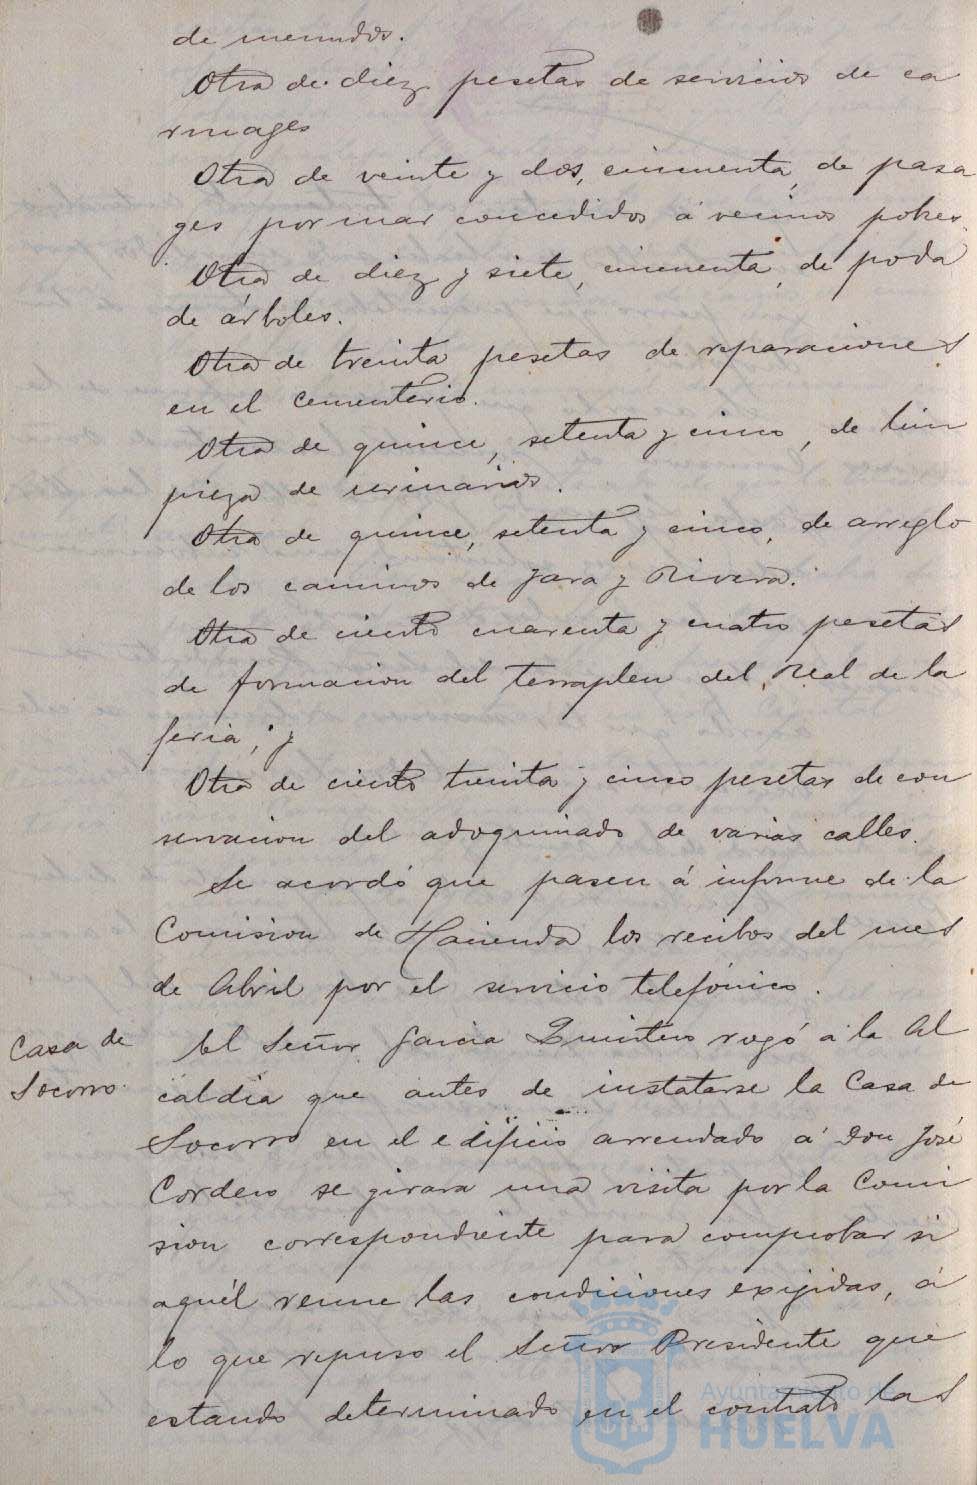 de menudos.
Otra de diez pesetas de servicios de ca
rruages
Otra de veinte y dos, cincuenta, de pasa
ges por mar concedidos á vecinos pobres.
Otra de diez y siete, cincuenta, de poda
de árboles.
Otra de treinta pesetas de reparaciones
en el cementerio.
Otra de quince, setenta y cinco, de lim
pieza de urinarios.
Otra de quince, setenta y cinco, de arreglo
de los caminos de Jara y Rivera.
Otra de ciento cuarenta y cuatro pesetas
de formacion del terraplen del Real de la
feria; y
Otra de ciento treinta y cinco pesetas de con
servacion del adoquinado de varias calles.
Se acordó que pasen á informe de la
Comision de Hacienda los recibos del mes
de Abril por el servicio telefónico.
Casa de
Socorro.
El Señor Garcia Quintero rogó á la Al
caldia que antes de instatarse la Casa de
Socorro en el edificio arrendado á Don José
Cordero se girara una visita por la Comi
sion correspondiente para comprobar si
aquél reune las condiciones exijidas, á
lo que repuso el Señor Presidente que
estando determinado en el contrato las
Ayuntamiento de
HUELVA